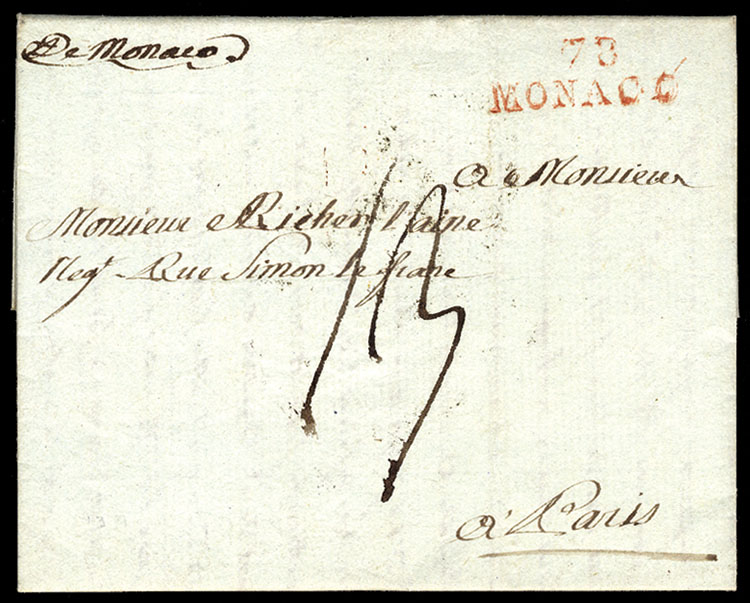 De Monaco
78
MONACO
A Monsieur
Monsieur Richer l'aine
Negt Rue Simon le franc
13
à Paris